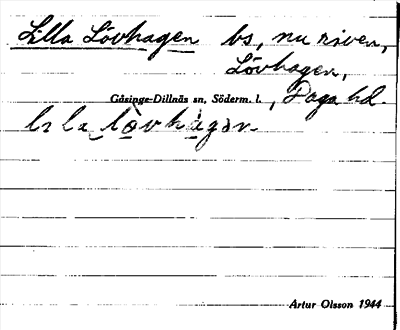 Lilla Lövhagen bs, nu riven,
Lövhagen,
Gåsinge-Dillnäs sn, Söderm. l., Daga hd.
lɩla lòvhàgan
Artur Olsson 1944